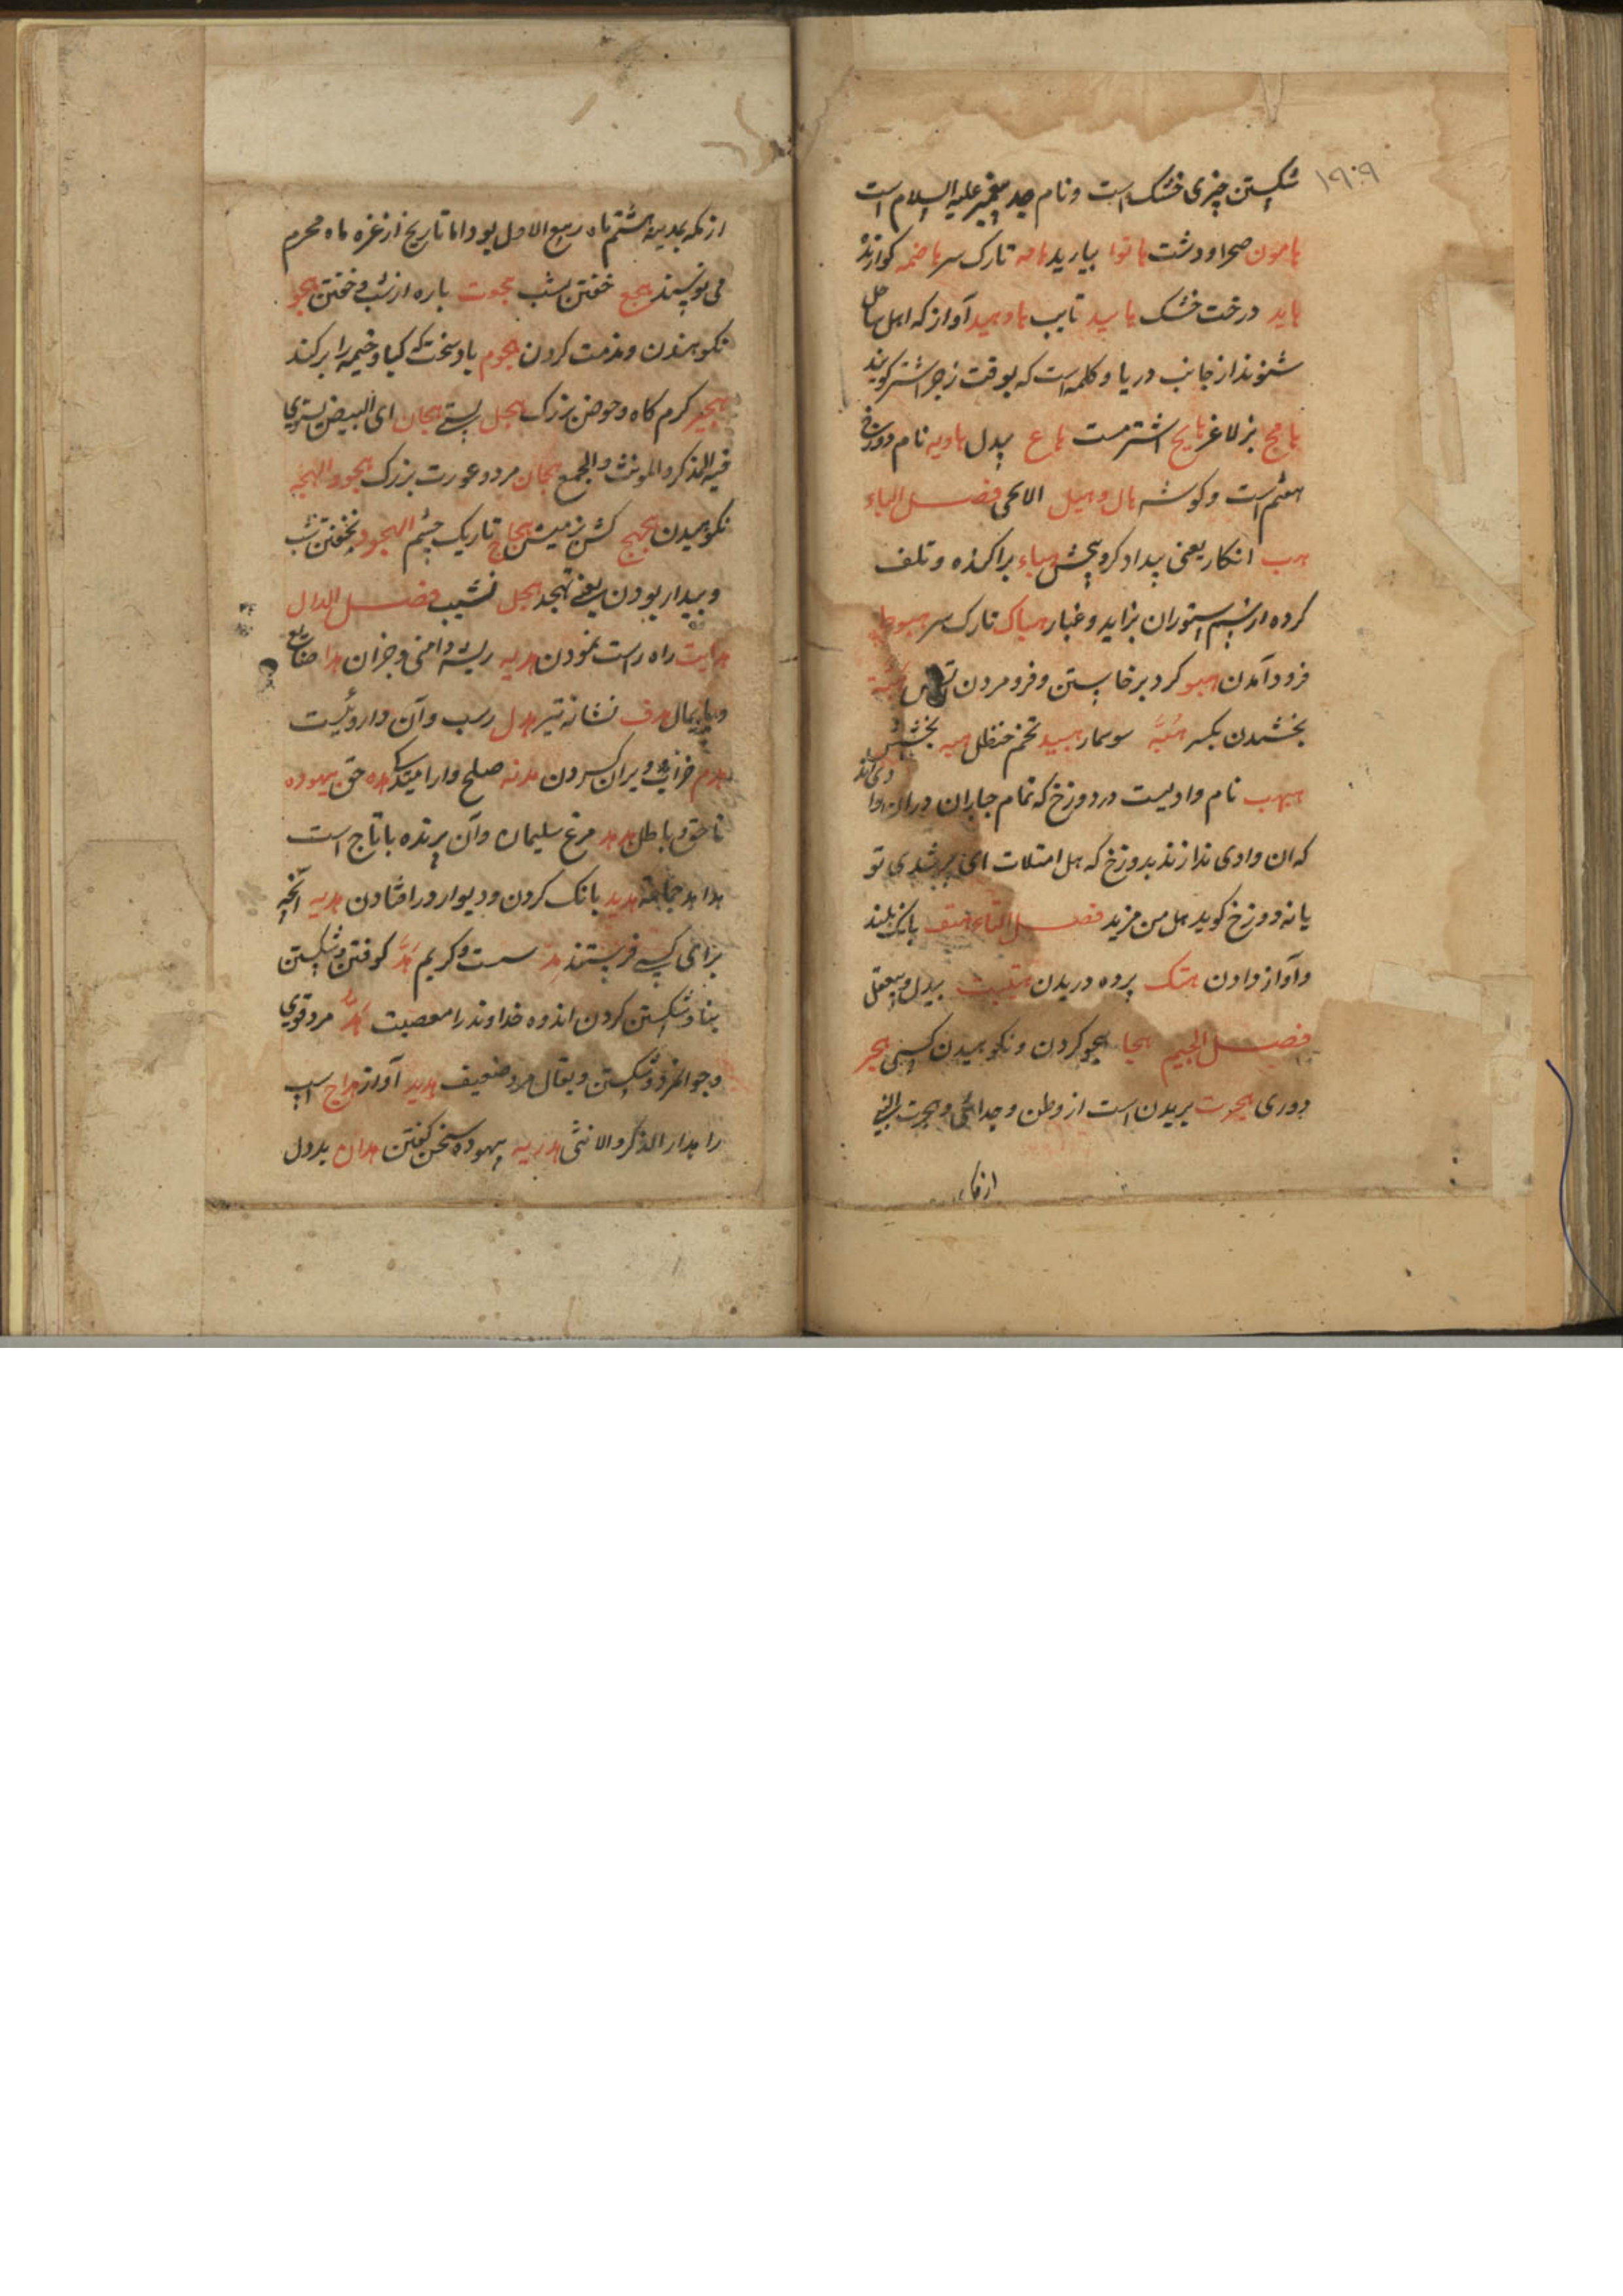 ۱۹۰۹
شکستن چیزی خشک است و نام جد پیغمبر علیه السلام است
هامون صحرا و دشت هاتوا بیارید هامه تارک سر هاضمه کوارنده
هاید درخت خشک هاید تایب هاد وهید آواز که اهل ساحل
شنوند از جانب دریا و کلمه است که بوقت زجر اشتر کویند
هامج بز لاغر هایج اشتر مست هاع بیدل هاویه نام دوزخ
هفتم است و کوشه هال وهیل الالحی فصل الباء
هب انکار یعنی پیدا کرد و بخش هباء پراکنده و تلف
کرده از سم ستوران بزاید و غبار هباک تارک سر هبوط
فرود آمدن هبو کرد برخاستن و فرو مردن هبة
بخشیدن بکسر هبة سوسمار هبید تخم حنظل هبه بخشش
هبهب نام وادیست در دوزخ که تمام جباران در ان وادی اند
که ان وادی ندا زند بدوزخ که هل امتلات ای پر شدی تو
یا نه دوزخ کوید هل من مزید فصل التاء هتف بانک بلند
و آواز دادن هتک پرده دریدن هتیت بیدل و بیعقل
فصل الجیم هجا هجو کردن و نکوهیدن کسی هجر
دوری هجرت بریدن است از وطن و جدائی و هجرت النبی
از مکه
از مکه بمدینه هشتم ماه ربیع الاول بود اما تاریخ از غره ماه محرم
می نویسند هجع خفتن بشب هجوت باره از شب و خفتن هجو
نکوهیدن و مذمت کردن هجوم باد سخت که کیاه و خیمه را برکند
هجیر کرم کاه و حوض بزرک هجل پستی هجان ای البیض یستوی
فیه المذکر والمونث والجمع هجان مرد و عورت بزرک هجو والهجه
نکوهیدن هجهج کشن زمین هجاج تاریک چشم الهجود بخفتن شب
و بیدار بودن یعنی تهجد هجل نشیب فصل الدال
هدایت راه راست نمودن هدیه ریشه دامنی و جزان هدا ضایع
و پایمال هدف نشانه تیر هدل رسب و آن داروئیست
هدم خراب و ویران کردن هدنه صلح و ارامیدکی هده حق بیهوده
ناحق و باطل هدهد مرغ سلیمان و آن پرنده با تاج است
هداهد جماعه هدید بانک کردن و دیوار در افتادن هدیه انچه
برای کسی فرستند هد سست و کریم هد کوفتن و شکستن
بنا و شکستن کردن اندوه خداوند را معصیت هد مرد قوی
و جوانمرد و شکستن و یقال مرد ضعیف هدید آواز هداج اسپ
را هدار الذکر والانثی هدریه بیهوده سخن کفتن هدان بددل